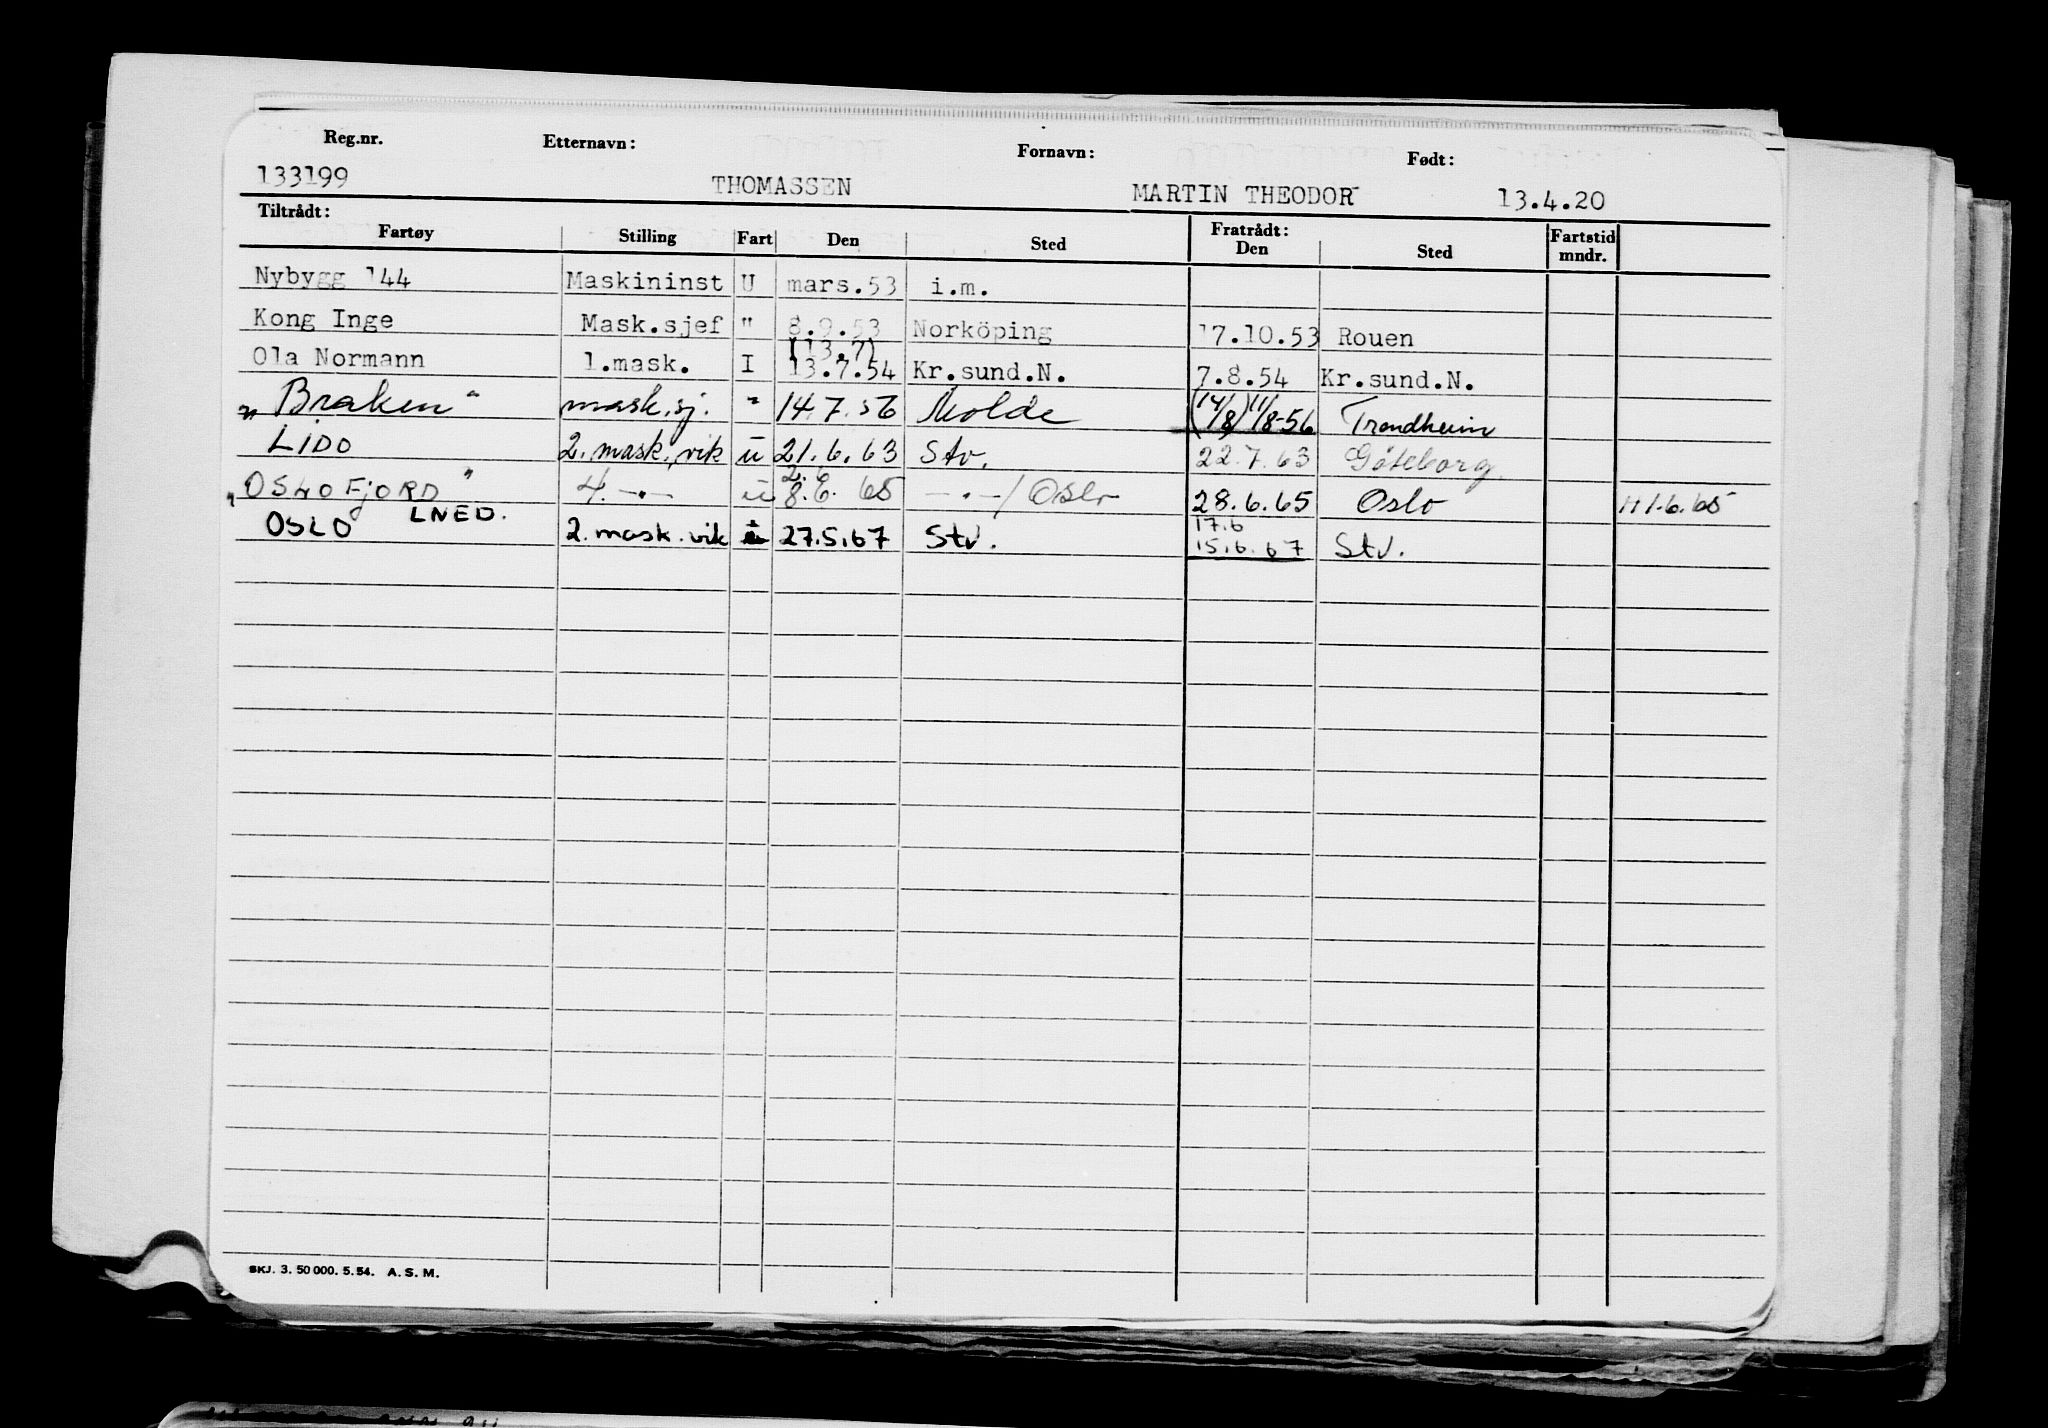 Reg.nr. Etternavn: Fornavn: Født:
133199 THOMASSEN MARTIN THEODOR 13.4.20
Tiltrådt: Fratrådt: Fartstid
Fartøy Stilling Fart Den Sted Den Sted mndr.
Nybygg 144 Maskininst U mars.53 i.m.
Kong Inge Mask.sjef " 8.9.53 Norköping 17.10.53 Rouen
(13.7)
Ola Normann 1.mask. I 13.7.54 Kr.sund.N. 7.8.54 Kr.sund.N.
"Braken" mask.sj. " 14.7.56 Molde (14/8) 11/8-56 Trondheim
LIDO 2. mask. vik u 21.6.63 Stv. 22.7.63 Göteborg
2.6
"OSLOFJORD" 4. -"- u 8.6.65 -"-/Oslo 28.6.65 Oslo 1.6.65
LNED. 17.6
OSLO 2. mask. vik 27.5.67 Stv. 15.6.67 Stv.
SKJ. 3. 50 000. 5.54. A.S.M.